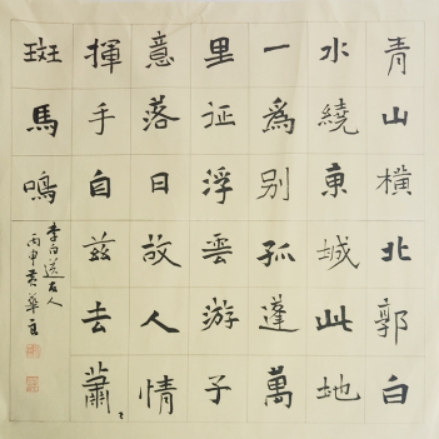 青山橫北郭白
水繞東城此地
一爲别孤蓬萬
里征浮雲游子
意落日故人情
揮手自茲去蕭々
斑馬鳴
李白送友人
丙申